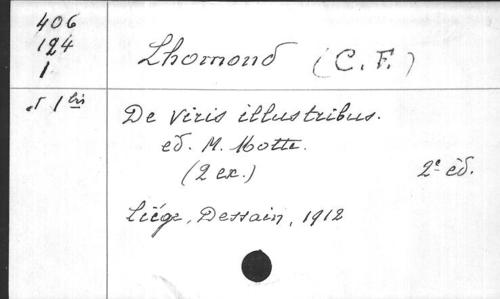 406
124
1
et 1 bis
Lhomond (C. F.)
De viris illustribus.
éd. M. Motte.
(2 ex.) 2e éd.
Liége, Dessain, 1912